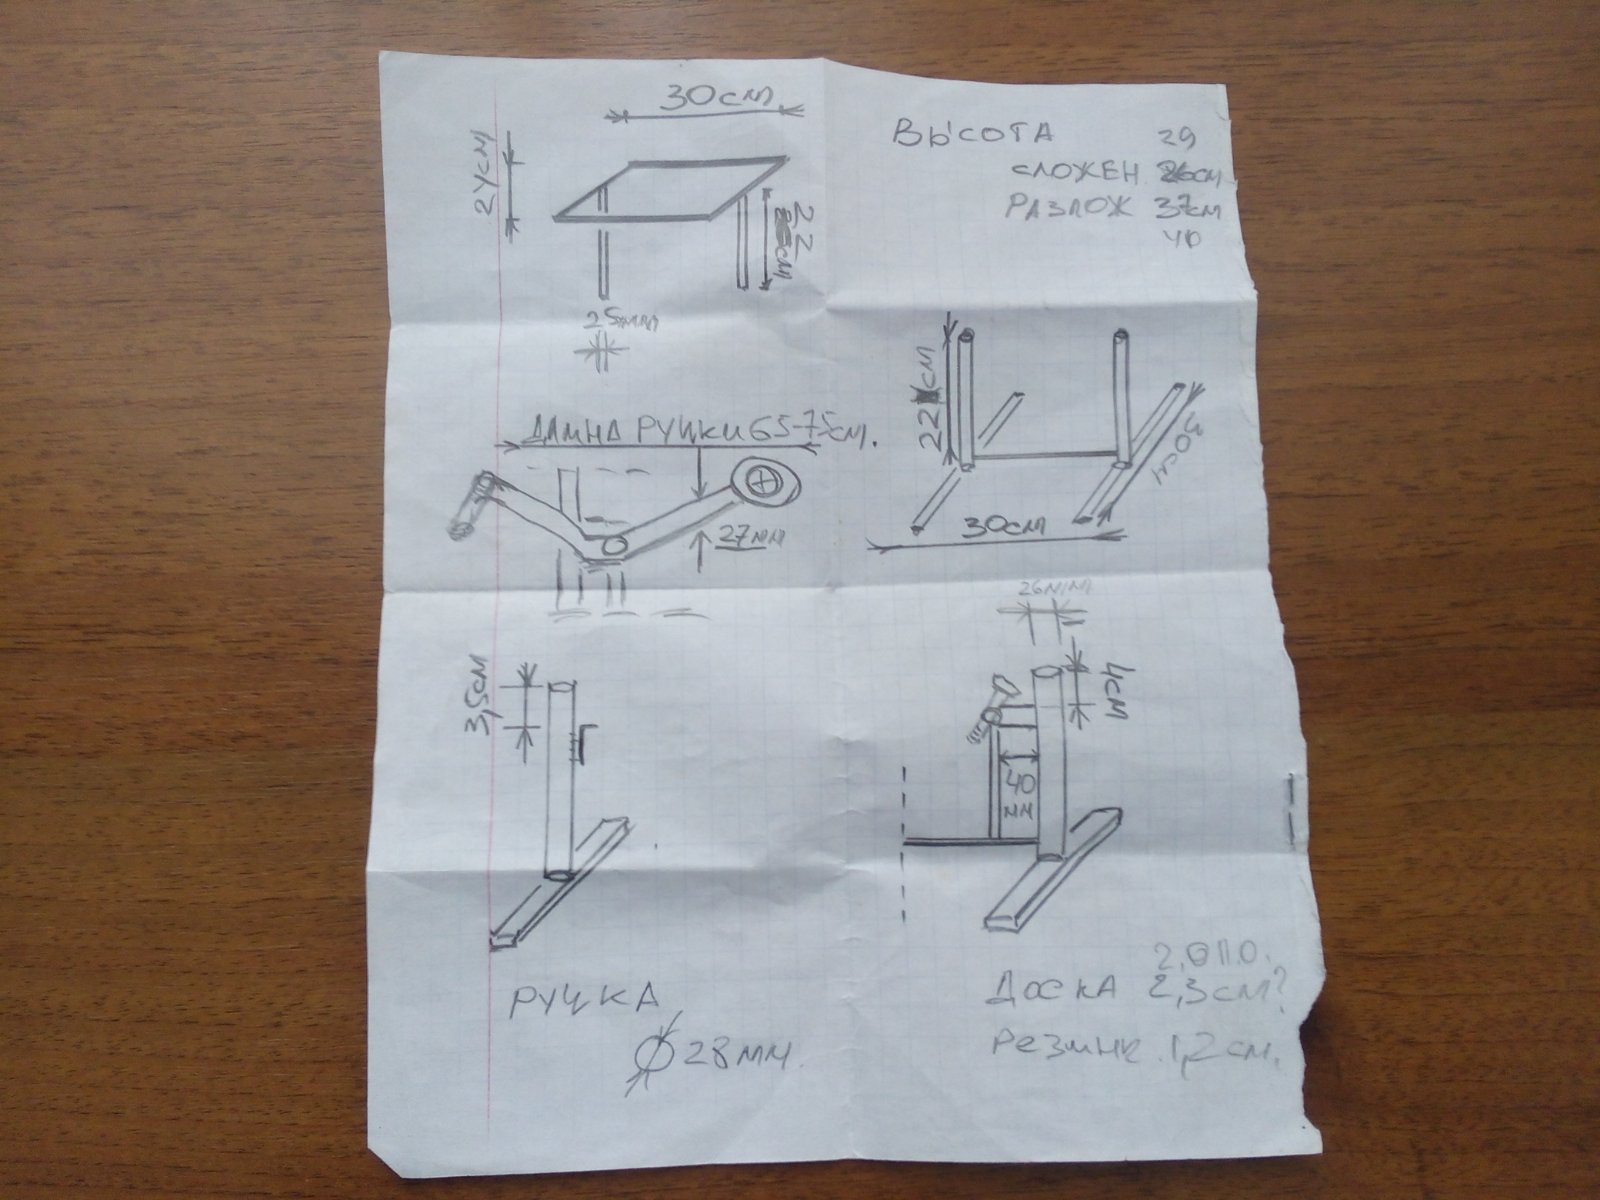 30см
24см
22
см
25мм
ВЫСОТА 29
СЛОЖЕН 26см
РАЗЛОЖ 37см
40
22 см
30см
30см
ДЛИНА РУЧКИ 65-75см.
27мм
3,5см
26мм
4см
40
мм
РУЧКА
Ø28мм.
ДОСКА 2,3см?
РЕЗИНК 1,2см.